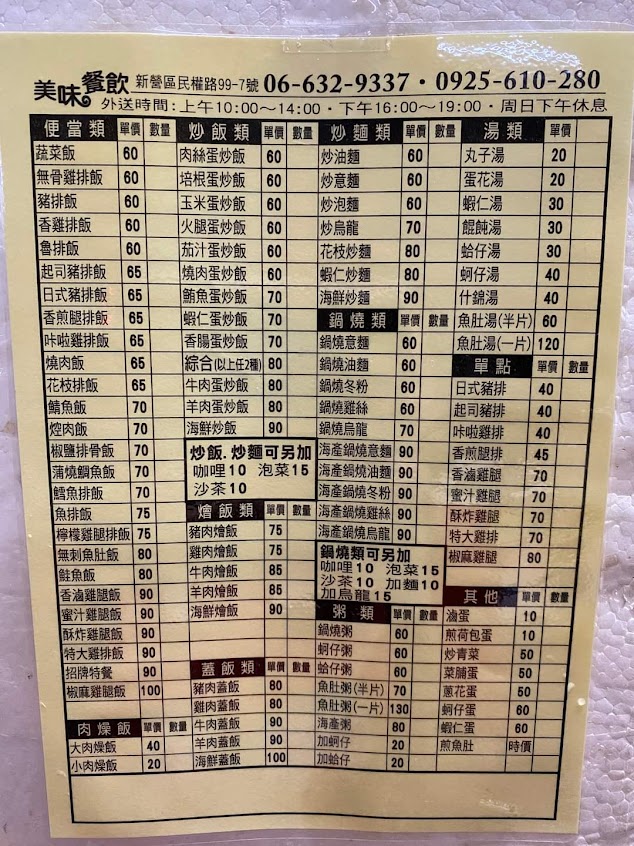 美味餐飲 新營區民權路99-7號 06-632-9337・0925-610-280
外送時間:上午10:00～14:00・下午16:00～19:00・周日下午休息
便當類 單價 數量
蔬菜飯 60
無骨雞排飯 60
豬排飯 60
香雞排飯 60
魯排飯 60
起司豬排飯 65
日式豬排飯 65
香煎腿排飯 65
咔啦雞排飯 65
燒肉飯 65
花枝排飯 65
鯖魚飯 70
焢肉飯 70
椒鹽排骨飯 70
蒲燒鯛魚飯 70
鱈魚排飯 70
魚排飯 75
檸檬雞腿排飯 75
無刺魚肚飯 80
鮭魚飯 80
香滷雞腿飯 90
蜜汁雞腿飯 90
酥炸雞腿飯 90
特大雞排飯 90
招牌特餐 90
椒麻雞腿飯 100
肉燥飯 單價 數量
大肉燥飯 40
小肉燥飯 20
炒飯類 單價 數量
肉絲蛋炒飯 60
培根蛋炒飯 60
玉米蛋炒飯 60
火腿蛋炒飯 60
茄汁蛋炒飯 60
燒肉蛋炒飯 60
鮪魚蛋炒飯 70
蝦仁蛋炒飯 70
香腸蛋炒飯 70
綜合(以上任2種) 80
牛肉蛋炒飯 80
羊肉蛋炒飯 80
海鮮炒飯 90
炒飯.炒麵可另加
咖哩10 泡菜15
沙茶10
燴飯類 單價 數量
豬肉燴飯 75
雞肉燴飯 75
牛肉燴飯 85
羊肉燴飯 85
海鮮燴飯 90
蓋飯類 單價 數量
豬肉蓋飯 80
雞肉蓋飯 80
牛肉蓋飯 90
羊肉蓋飯 90
海鮮蓋飯 100
炒麵類 單價 數量
炒油麵 60
炒意麵 60
炒泡麵 60
炒烏龍 70
花枝炒麵 80
蝦仁炒麵 80
海鮮炒麵 90
鍋燒類 單價 數量
鍋燒意麵 60
鍋燒油麵 60
鍋燒冬粉 60
鍋燒雞絲 60
鍋燒烏龍 70
海產鍋燒意麵 90
海產鍋燒油麵 90
海產鍋燒冬粉 90
海產鍋燒雞絲 90
海產鍋燒烏龍 90
鍋燒類可另加
咖哩10 泡菜15
沙茶10 加麵10
加烏龍15
粥類 單價 數量
鍋燒粥 60
蚵仔粥 60
蛤仔粥 60
魚肚粥(半片) 70
魚肚粥(一片) 130
海產粥 80
加蚵仔 20
加蛤仔 20
湯類 單價 數量
丸子湯 20
蛋花湯 20
蝦仁湯 30
餛飩湯 30
蛤仔湯 30
蚵仔湯 40
什錦湯 40
魚肚湯(半片) 60
魚肚湯(一片) 120
單點 單價 數量
日式豬排 40
起司豬排 40
咔啦雞排 40
香煎腿排 45
香滷雞腿 70
蜜汁雞腿 70
酥炸雞腿 70
特大雞排 70
椒麻雞腿 80
其他 單價 數量
滷蛋 10
煎荷包蛋 10
炒青菜 50
菜脯蛋 50
蔥花蛋 50
蚵仔蛋 60
蝦仁蛋 60
煎魚肚 時價